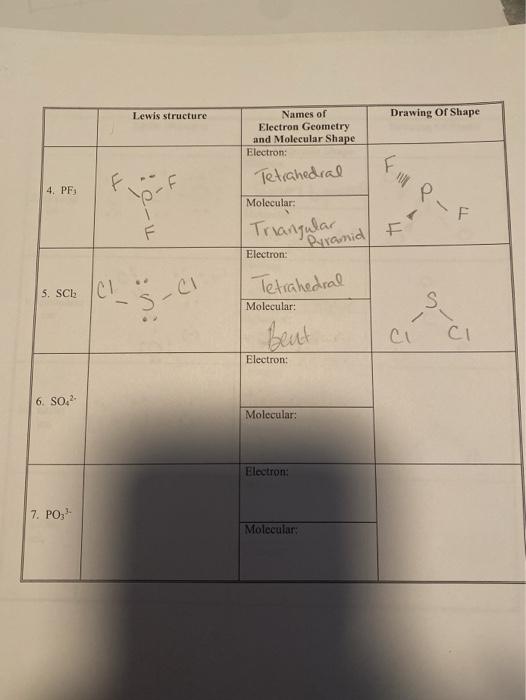 Lewis structure
Names of
Electron Geometry
and Molecular Shape
Drawing Of Shape
4. PF₃
F F
P
F
Electron:
Tetrahedral
Molecular:
Triangular
Pyramid
F
P
F F
5. SCl₂
Cl S Cl
Electron:
Tetrahedral
Molecular:
Bent
S
Cl Cl
6. SO₄²⁻
Electron:
Molecular:
7. PO₃³⁻
Electron:
Molecular: